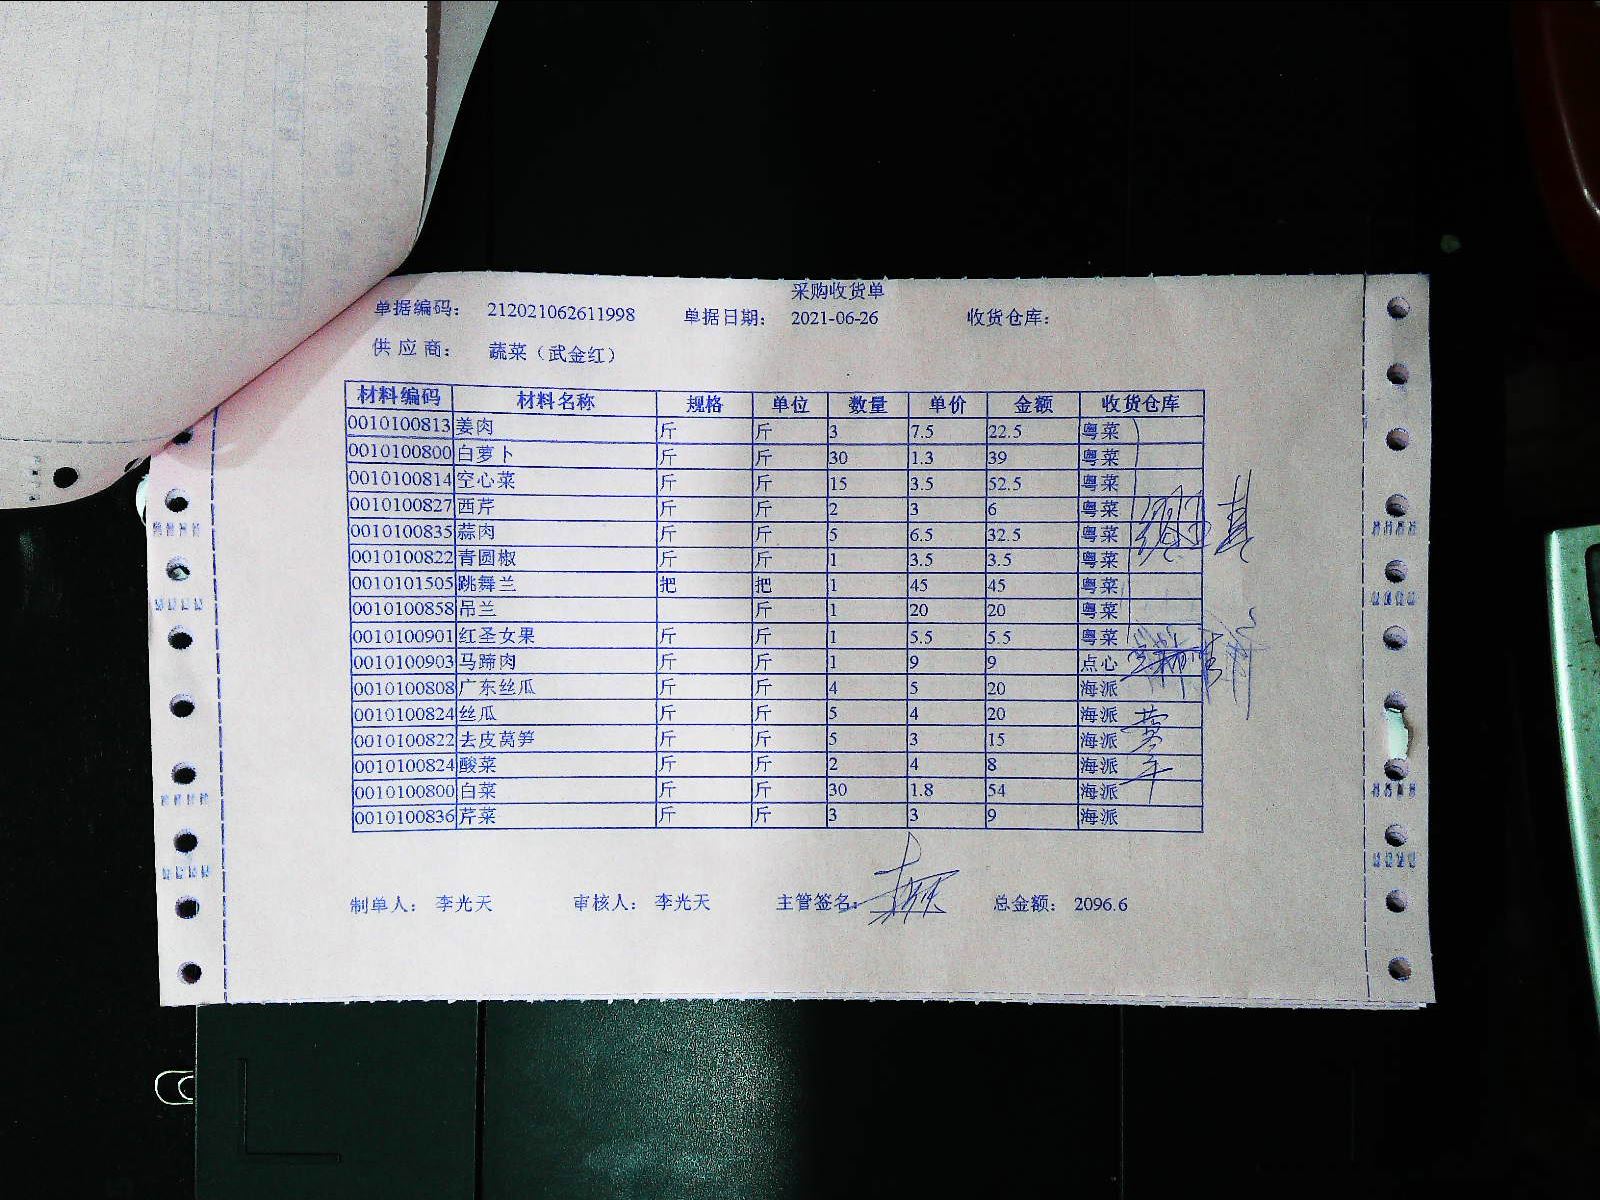 采购收货单
单据编码： 212021062611998 单据日期： 2021-06-26 收货仓库：
供 应 商： 蔬菜（武金红）
材料编码 材料名称 规格 单位 数量 单价 金额 收货仓库
0010100813 姜肉 斤 斤 3 7.5 22.5 粤菜
0010100800 白萝卜 斤 斤 30 1.3 39 粤菜
0010100814 空心菜 斤 斤 15 3.5 52.5 粤菜
0010100827 西芹 斤 斤 2 3 6 粤菜
0010100835 蒜肉 斤 斤 5 6.5 32.5 粤菜
0010100822 青圆椒 斤 斤 1 3.5 3.5 粤菜
0010101505 跳舞兰 把 把 1 45 45 粤菜
0010100858 吊兰 斤 1 20 20 粤菜
0010100901 红圣女果 斤 斤 1 5.5 5.5 粤菜
0010100903 马蹄肉 斤 斤 1 9 9 点心
0010100808 广东丝瓜 斤 斤 4 5 20 海派
0010100824 丝瓜 斤 斤 5 4 20 海派
0010100822 去皮莴笋 斤 斤 5 3 15 海派
0010100824 酸菜 斤 斤 2 4 8 海派
0010100800 白菜 斤 斤 30 1.8 54 海派
0010100836 芹菜 斤 斤 3 3 9 海派
制单人： 李光天 审核人： 李光天 主管签名： 总金额： 2096.6